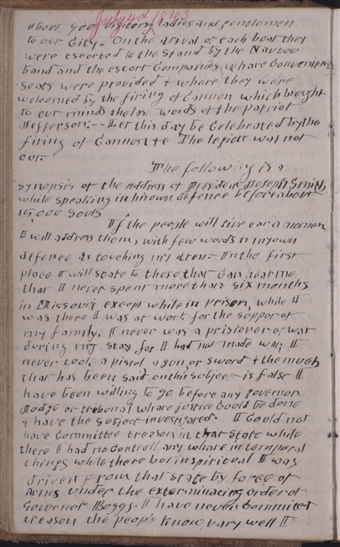 July 4th 1843
about 900 visitors, ladies and gentlemen
to our City. On the arival of each boat they
were escorted to the Stand by the Nauvoo
band and the escort Companies, whare Convenient
seats were provided & whare they were
welcomed by the firing of Cannon which brought
to our minds the last words of the patriot
Jefferson:— Let this day be Celebrated by the
firing of Cannon &c The report was not
our
The following is a
synopsis of the address of President Joseph Smith
while speaking in his own defence before about
15,000 Souls
If the people will give ear a moment
I will address them, with few words in my own
defence as touching my arrest In the first
place I will state to those that can hear me
that I never spent more than six months
in Missouri except while in prison, while I
was there I was at work for the support of
my family. I never was a prisioner of war
during my stay for I had not made war. I
never took a pistol a gun or sword & the much
that has been said on this subject is false I
have been willing to go before any governor
Judge or tribunal whare justice could be done
& have the subject investigated. I could not
have Committed treason in that State while
there I had no Controll any whare in temporal
things while there but in spiritual I was
driven from that state by force of
arms under the exterminating order of
Governor Boggs. I have never Committed
treason the people know vary well I